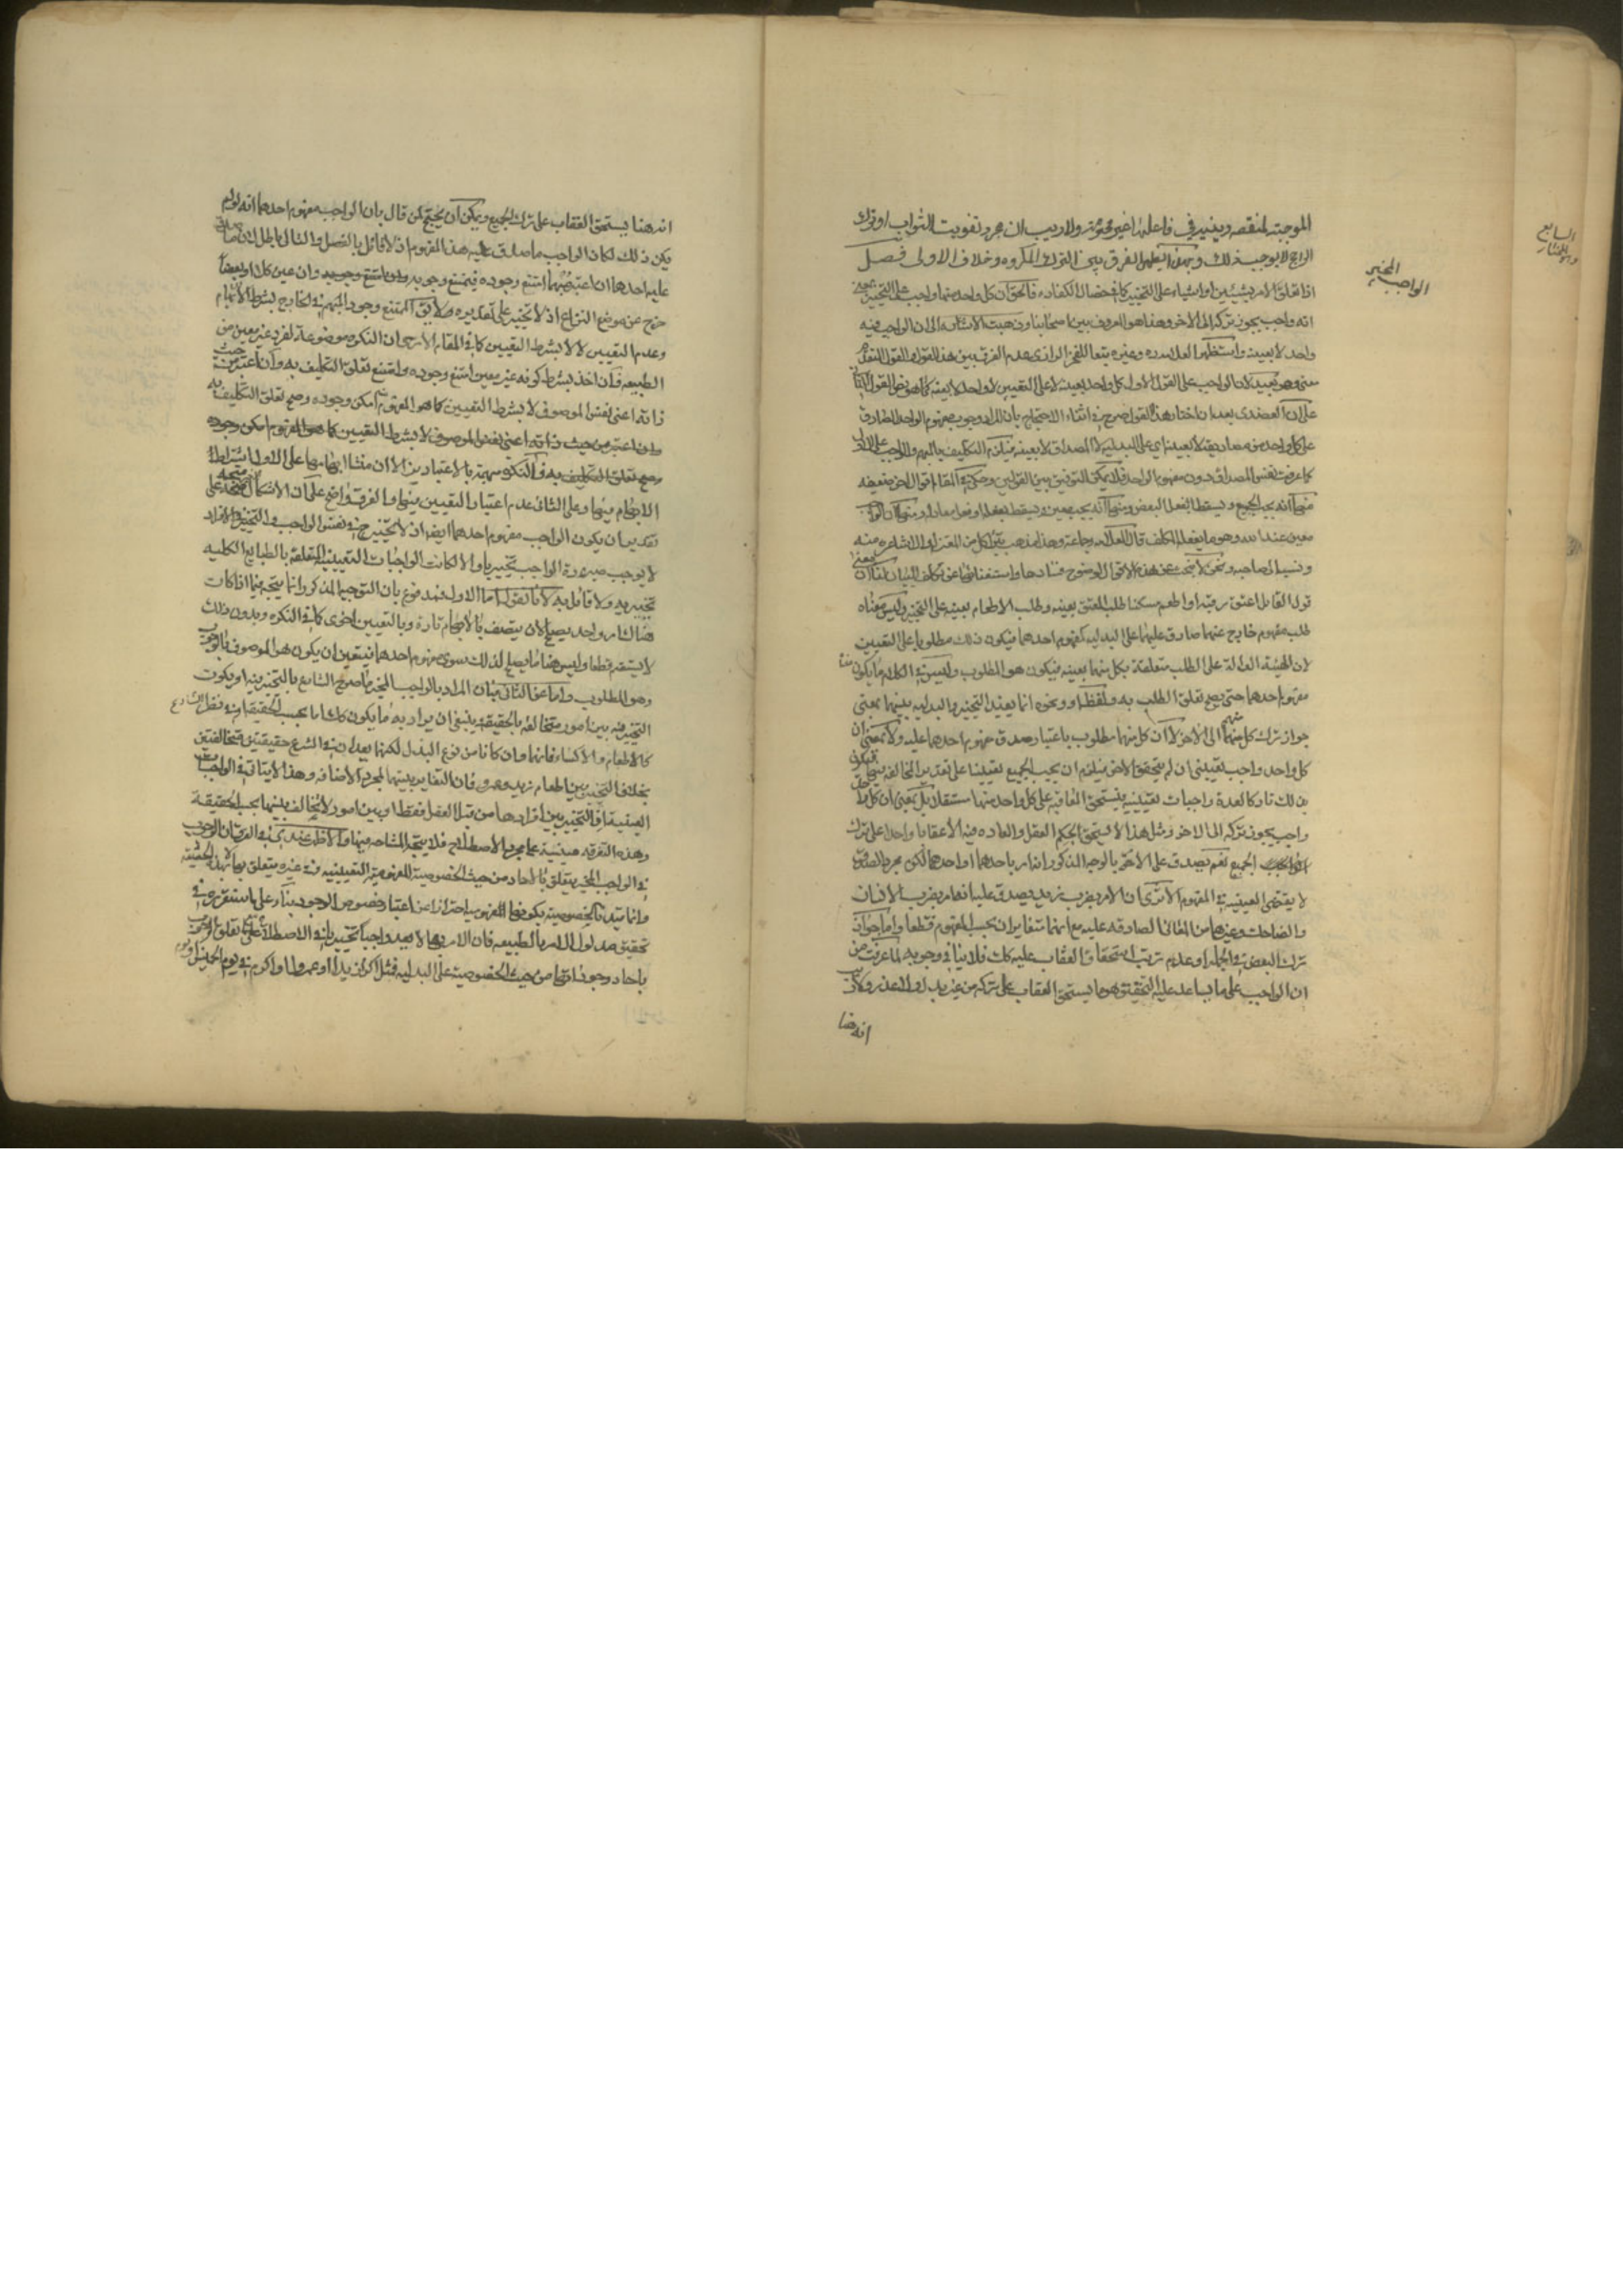 الموجبة لمنقصة دينية في فاعلها غير محرمة ولا ريب ان مجرد تفويت الثواب او ترك
الراجح لا يوجب ذلك وبهذا يظهر الفرق بين الترك المكروه وخلاف الاولى فصل
اذا تعلق الامر بشيئين او اشياء على التخيير كما في خصال الكفارة فالحق ان كل واحد منها واجب على التخيير بمعنى
انه واجب يجوز تركه الى الاخر وهذا هو المعروف بين اصحابنا وذهبت الاشاعرة الى ان الواجب فيه
واحد لا بعينه واستظهر العلامة وغيره تبعا للفخر الرازي عدم الفرق بين هذا القول والقول المتقدم
معنى وهو بعيد لان الواجب على القول الاول كل واحد بعينه لا على التعيين لا واحد لا بعينه كما هو نص القول الثاني
على ان العضدي بعد ان اختار هذا القول صرح في اثناء الاحتجاج بان المراد وجوب مفهوم الواحد الصادق
على كل واحد من مصاديقه لا بعينه اي على البدلية لا المصداق لا بعينه فيلزم التكليف بالمبهم والواجب على الاول
كما عرفت نفس المصداق دون مفهوم الواحد فلا يمكن التوفيق بين القولين وحكي في المقام اقوال اخر ضعيفة
منها انه يجب الجميع ويسقط بفعل البعض ومنها انه يجب معين ويسقط بفعله او فعل معادله ومنها ان الواجب
معين عند الله وهو ما يفعله المكلف قال العلامة وجماعة وهذا مذهب يتبرأ كل من المعتزلة والاشاعرة منه
ونسبه الى صاحبه ونحن لا نبحث عن هذه الاقوال لوضوح فسادها واستغنائها عن تكلف البيان لنا ان
قول القائل اعتق رقبة او اطعم مسكينا طلب للعتق بعينه وطلب الاطعام بعينه على التخيير وليس معناه
طلب مفهوم خارج عنهما صادق عليهما على البدلية كمفهوم احدهما فيكون ذلك مطلوبا على التعيين
لان الهيئة الدالة على الطلب متعلقة بكل منهما بعينه فيكون هو المطلوب وليس في الكلام ما يكون
مفهوم احدهما حتى يصح تعلق الطلب به ولفظة او ونحوه انما يفيد التخيير والبدلية بينهما بمعنى
جواز ترك كل منهما الى الاخر لا ان كل منهما مطلوب باعتبار صدق مفهوم احدهما عليه ولا بمعنى ان
كل واحد واجب تعييني ان لم يتحقق الاخر فيلزم ان يجب الجميع تعيينا على تقدير المخالفة فيكون
بذلك تاركا لعدة واجبات تعيينية فيستحق المعاقبة على كل واحد منها مستقلا بل بمعنى ان كل واحد
واجب يجوز تركه الى الاخر ومثل هذا لا يستحق بحكم العقل والعادة فيه الا عقابا واحدا على ترك
الجميع نعم يصدق على الامر بالوجه المذكور انه امر باحدهما او احدها لكن مجرد الصدق
لا يقتضي العينية في المفهوم الا ترى ان الامر بضرب زيد يصدق عليه انه امر بضرب الانسان
والضاحك وغيرهما من المعاني الصادقة عليه مع انهما متغايران بحسب المفهوم قطعا واما جواز
ترك البعض في الجملة وعدم ترتب استحقاق العقاب عليه كذلك فلا ينافي وجوبه لما عرفت من
ان الواجب على ما يساعد عليه التحقيق هو ما يستحق العقاب على تركه من غير بدل ولا عذر ولا ريب
انه هنا
الواجب المخير
السابع
انه هنا يستحق العقاب على ترك الجميع ويمكن ان يحتج لمن قال بان الواجب مفهوم احدهما انه لو لم
يكن ذلك لكان الواجب ما صدق عليه هذا المفهوم اذ لا قائل بالفصل والتالي باطل لان ما صدق
عليه احدها ان اعتبر مبهما امتنع وجوده فيمتنع وجوبه وان عين كلا او بعضا
خرج عن موضع النزاع اذ لا تخيير على تقديره لا يق الممتنع وجود المبهم في الخارج بشرط الابهام
وعدم التعيين لا لا بشرط التعيين كما في المقام الا ترى ان النكرة موضوعة لفرد غير معين من
الطبيعة فان اخذ بشرط كونه غير معين امتنع وجوده وامتنع تعلق التكليف به وان اعتبر من حيث
ذاته اعني نفس الموصوف لا بشرط التعيين كما هو المفهوم امكن وجوده وصح تعلق التكليف به
وان اعتبر من حيث ذاته اعني نفس الموصوف لا بشرط التعيين كما هو المفهوم امكن وجوده
وصح تعلق التكليف به فالنكرة مبهمة بالاعتبارين الا ان منشا ابهامها على الاول اشتراط
الابهام فيها وعلى الثاني عدم اعتبار التعيين فيها والفرق واضح على ان الاشكال متجه على
تقدير ان يكون الواجب مفهوم احدهما ايضا اذ لا تخيير ح في نفس الواجب والتخيير في الافراد
لا يوجب صيرورة الواجب تخييريا والا لكانت الواجبات التعيينية المتعلقة بالطبايع الكلية
تخييرية ولا قائل به لانا نقول اما الاول فمدفوع بان التوجيه المذكور انما يتجه فيما اذا كان
هناك امر واحد يصلح لان يتصف بالابهام تارة وبالتعيين اخرى كما في النكرة وبدون ذلك
لا يستقيم قطعا وليس هنا ما يصلح لذلك سوى مفهوم احدهما فيتعين ان يكون هو الموصوف بالوجوب
وهو المطلوب واما عن الثاني فبان المراد بالواجب المخير ما صرح الشارع بالتخيير فيه او يكون
التخيير فيه بين امور متخالفة بالحقيقة ينبغي ان يراد به ما يكون كك اما بحسب الحقيقة او في نظر الشارع
كالاطعام والاكساء فانهما وان كانا من نوع البذل لكنهما يعدان في الشرع حقيقتين متخالفتين
بخلاف التخيير بين اطعام زيد وعمرو فان التغاير بينهما لمجرد الاضافة وهذا لا يتاتى في الواجبات
العينية فان التخيير بين افرادها من قبل العقل فقط او بين امور لا تخالف بينها بحسب الحقيقة
وهذه التفرقة مبنية على مجرد الاصطلاح فلا يتجه المشاحة فيها والاظهر عندي في الفرق ان الوجوب
في الواجب المخير يتعلق بالاحاد من حيث الخصوصية المفهومية التعيينية وفي غيره يتعلق بها لا بهذه الحيثية
وانما قيدنا الخصوصية بكونها المفهومية احترازا عن اعتبار خصوص الوجود بناء على ما سنقرره في
تحقيق مدلول الامر بالطبيعة فان الامر بها لا يعد واجبا تخييريا في الاصطلاح على تعلق الوجوب
باحاد وجوداتها من حيث الخصوصية على البدلية فمثل اكرم زيدا او عمروا واكرم في يوم الخميس او يوم